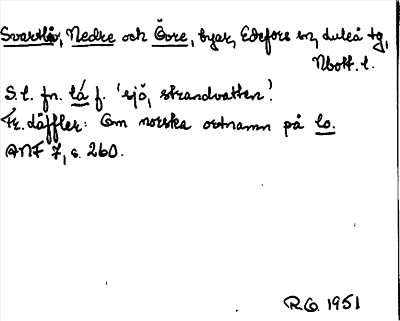 Svartlå, Nedre och Övre, byar, Edefors sn, Luleå tg,
Nbott. l.
S. l. fn. lá f. 'sjö, strandvatten'.
Fr. Läffler: Om norska ortnamn på lo.
ANF 7, s. 260.
R.O. 1951